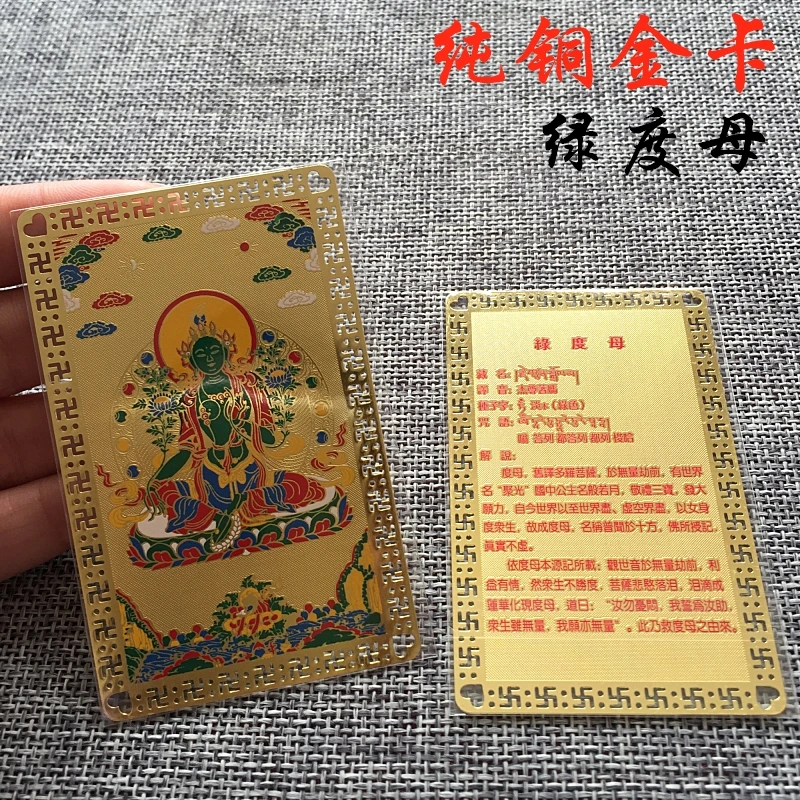 纯铜金卡
绿度母
綠度母
藏 名:
譯 音:
種子字: (綠色)
咒 語:
嗡 答列 都答列 都列 梭哈
解 說:
度母,舊譯多羅菩薩,於無量劫前,有世界
名“聚光”國中公主名般若月,敬禮三寶,發大
願力,自今世界以至世界盡、虛空界盡,以女身
度衆生,故成度母,名稱普聞於十方,佛所授記,
真實不虛。
依度母本源記所載:觀世音於無量劫前,利
益有情,然衆生不勝度,菩薩悲愍落泪,泪滴成
蓮華化現度母,道曰:“汝勿憂悶,我誓爲汝助,
衆生雖無量,我願亦無量”。此乃救度母之由來。